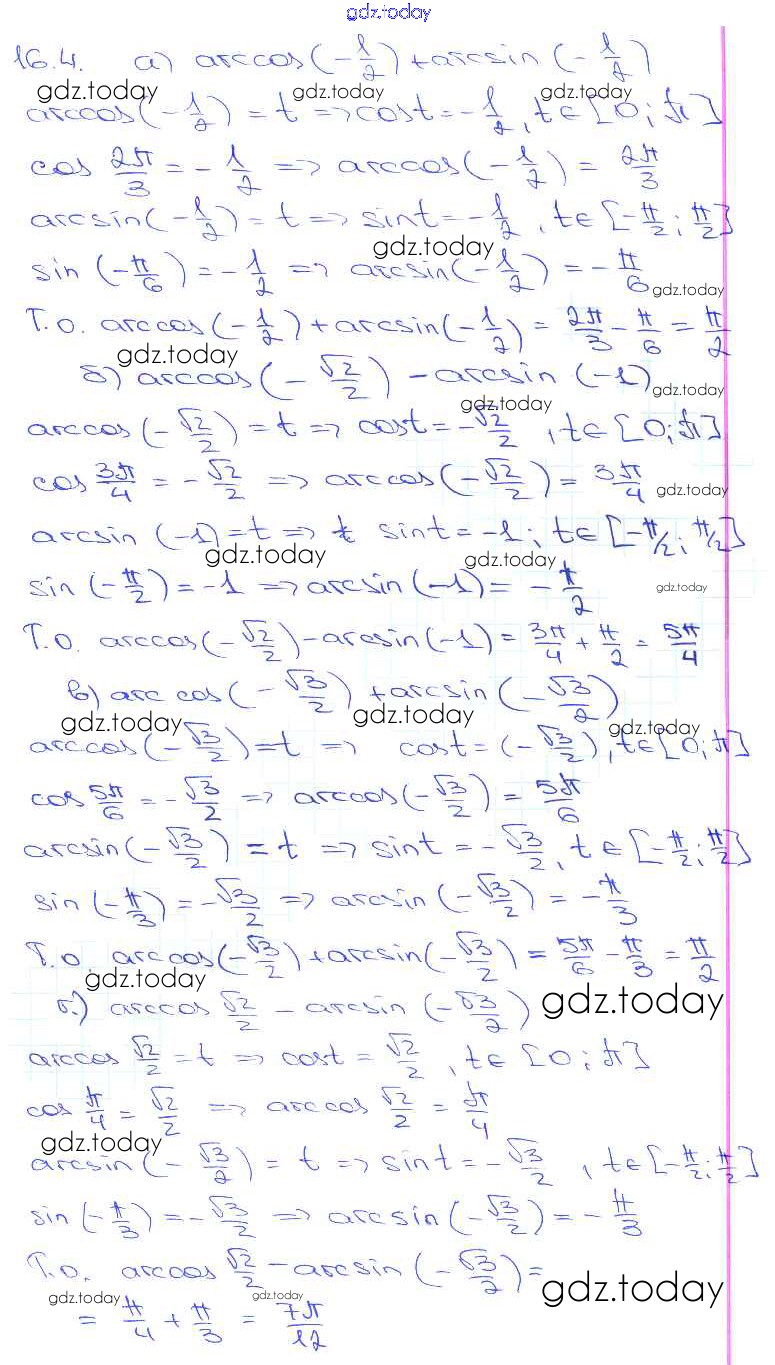 gdz.today
16.4. а) arccos(-1/2)+arcsin(-1/2)
gdz.today gdz.today gdz.today
arccos(-1/2) = t => cost = -1/2, t∈[0; π]
cos 2π/3 = -1/2 => arccos(-1/2) = 2π/3
arcsin(-1/2) = t => sint = -1/2, t∈[-π/2; π/2]
gdz.today
sin (-π/6) = -1/2 => arcsin(-1/2) = -π/6
gdz.today
Т.о. arccos(-1/2)+arcsin(-1/2) = 2π/3 - π/6 = π/2
gdz.today
б) arccos(-√2/2) - arcsin (-1)
gdz.today
gdz.today
arccos(-√2/2) = t => cost = -√2/2, t∈[0; π]
cos 3π/4 = -√2/2 => arccos(-√2/2) = 3π/4
gdz.today
arcsin (-1) = t => t sint = -1; t∈[-π/2; π/2]
gdz.today gdz.today
sin (-π/2) = -1 => arcsin(-1) = -π/2
gdz.today
Т.о. arccos(-√2/2) - arcsin(-1) = 3π/4 + π/2 = 5π/4
в) arccos(-√3/2) + arcsin(-√3/2)
gdz.today gdz.today gdz.today
arccos(-√3/2) = t => cost = (-√3/2), t∈[0; π]
cos 5π/6 = -√3/2 => arccos(-√3/2) = 5π/6
arcsin(-√3/2) = t => sint = -√3/2, t∈[-π/2; π/2]
sin (-π/3) = -√3/2 => arcsin(-√3/2) = -π/3
Т.о. arccos(-√3/2)+arcsin(-√3/2) = 5π/6 - π/3 = π/2
gdz.today
г) arccos √2/2 - arcsin (-√3/2)
gdz.today
arccos √2/2 = t => cost = √2/2, t∈[0; π]
cos π/4 = √2/2 => arccos √2/2 = π/4
gdz.today
arcsin(-√3/2) = t => sint = -√3/2, t∈[-π/2; π/2]
sin(-π/3) = -√3/2 => arcsin(-√3/2) = -π/3
Т.о. arccos √2/2 - arcsin(-√3/2) =
gdz.today gdz.today gdz.today
= π/4 + π/3 = 7π/12